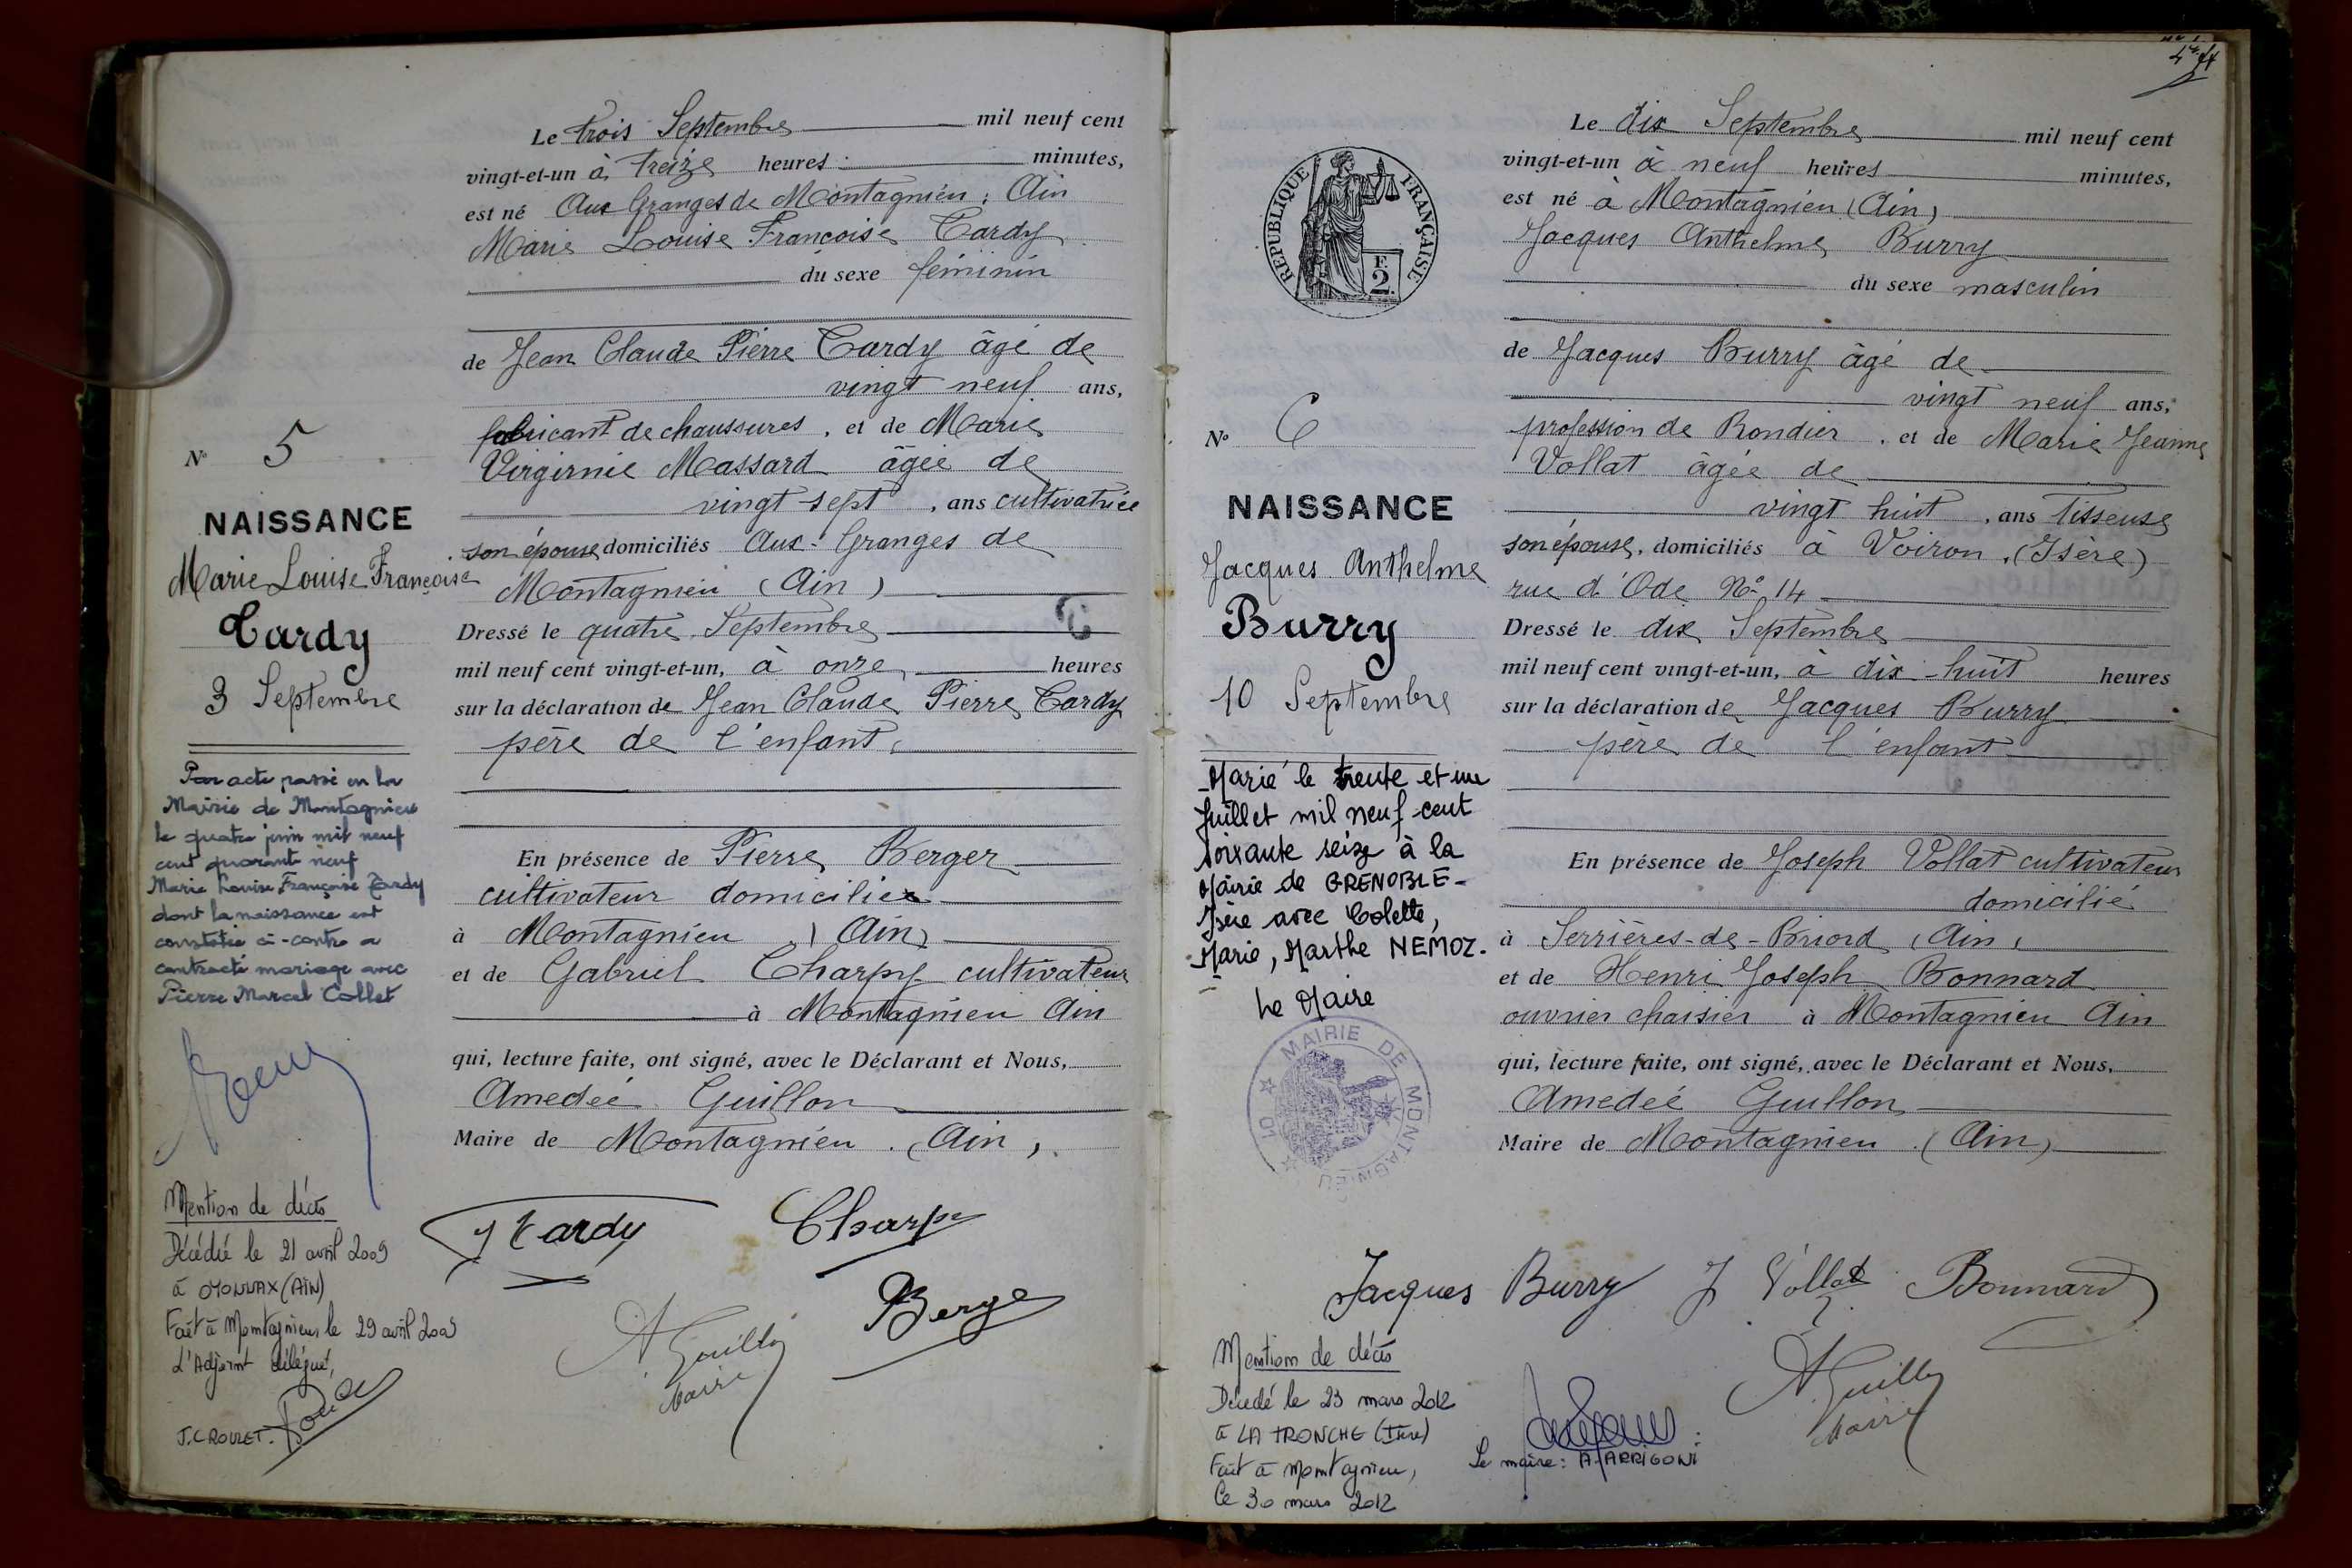 Le trois Septembre mil neuf cent
vingt-et-un à treize heures minutes,
est né Aux Granges de Montagnieu : Ain
Marie Louise Françoise Tardy
du sexe féminin
de Jean Claude Pierre Tardy âgé de
vingt neuf ans,
fabricant de chaussures, et de Marie
Virginie Massard âgée de
vingt-sept, ans cultivatrice
son épouse domiciliés Aux-Granges de
Montagnieu (Ain)
Dressé le quatre Septembre
mil neuf cent vingt-et-un, à onze heures
sur la déclaration de Jean Claude Pierre Tardy
père de l'enfant
En présence de Pierre Berger
cultivateur domicilié
à Montagnieu (Ain)
et de Gabriel Charpy cultivateur
à Montagnieu Ain
qui, lecture faite, ont signé, avec le Déclarant et Nous,
Amedée Guillon
Maire de Montagnieu (Ain),
J Tardy
Charpy
Berger
A Guillon
Maire
No 5
NAISSANCE
Marie Louise Françoise
Tardy
3 Septembre
Par acte passé en la
Mairie de Montagnieu
le quatre juin mil neuf
cent quarante neuf
Marie Louise Françoise Tardy
dont la naissance est
constatée ci-contre a
contracté mariage avec
Pierre Marcel Collet
Mention de décès
Décédée le 21 avril 2009
à OYONNAX (AIN)
Fait à Montagnieu, le 29 avril 2009
L'Adjoint délégué,
J.C ROUZET.
Le dix Septembre mil neuf cent
vingt-et-un à neuf heures minutes,
est né à Montagnieu (Ain)
Jacques Anthelme Burry
du sexe masculin
de Jacques Burry âgé de
vingt neuf ans,
profession de Rondier, et de Marie Jeanne
Vollat âgée de
vingt huit, ans Tisseuse
son épouse, domiciliés à Voiron, (Isère)
rue d'Ode No 14
Dressé le dix Septembre
mil neuf cent vingt-et-un, à dix-huit heures
sur la déclaration de Jacques Burry
père de l'enfant
En présence de Joseph Vollat cultivateur
domicilié
à Serrières-de-Briord (Ain)
et de Henri Joseph Bonnard
ouvrier chaisier à Montagnieu Ain
qui, lecture faite, ont signé, avec le Déclarant et Nous,
Amedée Guillon
Maire de Montagnieu (Ain)
Jacques Burry J Vollat Bonnard
A Guillon
Maire
REPUBLIQUE FRANÇAISE
F.
2.
No 6
NAISSANCE
Jacques Anthelme
Burry
10 Septembre
Marié le trente et un
Juillet mil neuf cent
soixante seize à la
Mairie de GRENOBLE-
Isère avec Colette,
Marie, Marthe NEMOZ.
Le Maire
MAIRIE DE MONTAGNIEU
Mention de décès
Décédé le 23 mars 2012
à LA TRONCHE (Isère)
Fait à Montagnieu,
Ce 30 mars 2012
Le maire : A. ARRIGONI